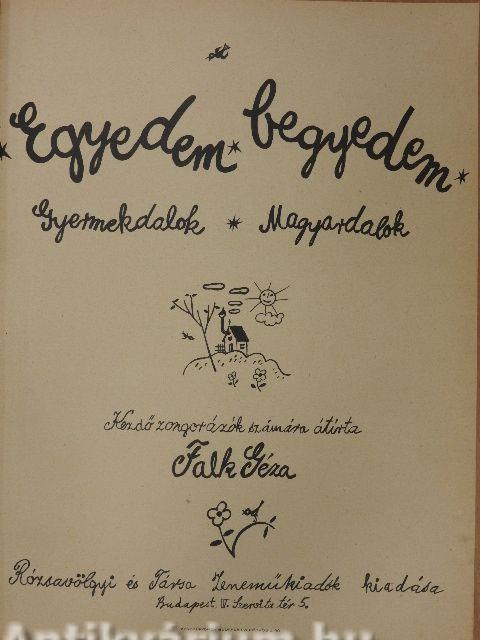 Egyedem * begyedem *
Gyermekdalok * Magyardalok
Kezdő zongorázók számára átírta
Falk Géza
Rózsavölgyi és Társa Zeneműkiadók kiadása
Budapest, IV. Szervita tér 5.